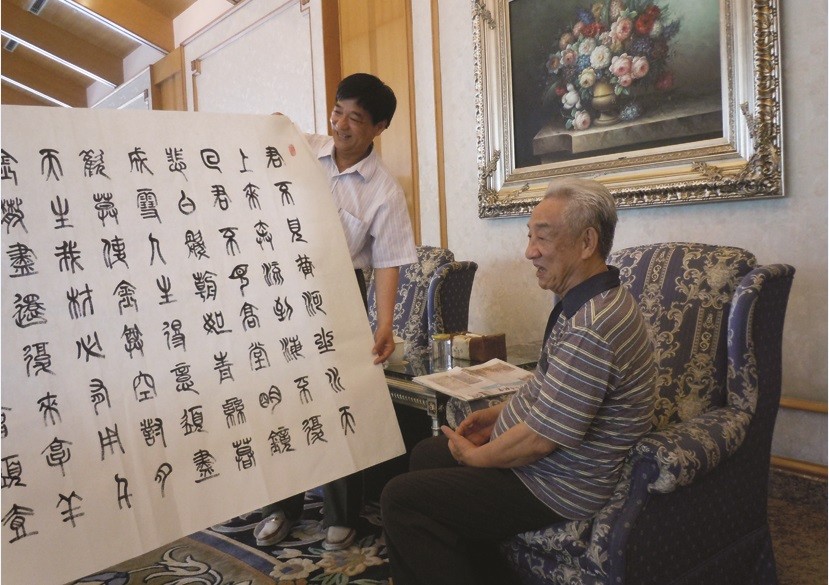 君不見黃河之水天
上來奔流到海不復
回君不見高堂明鏡
悲白髮朝如青絲暮
成雪人生得意須盡
歡莫使金樽空對月
天生我材必有用千
金散盡還復來烹羊
須壹